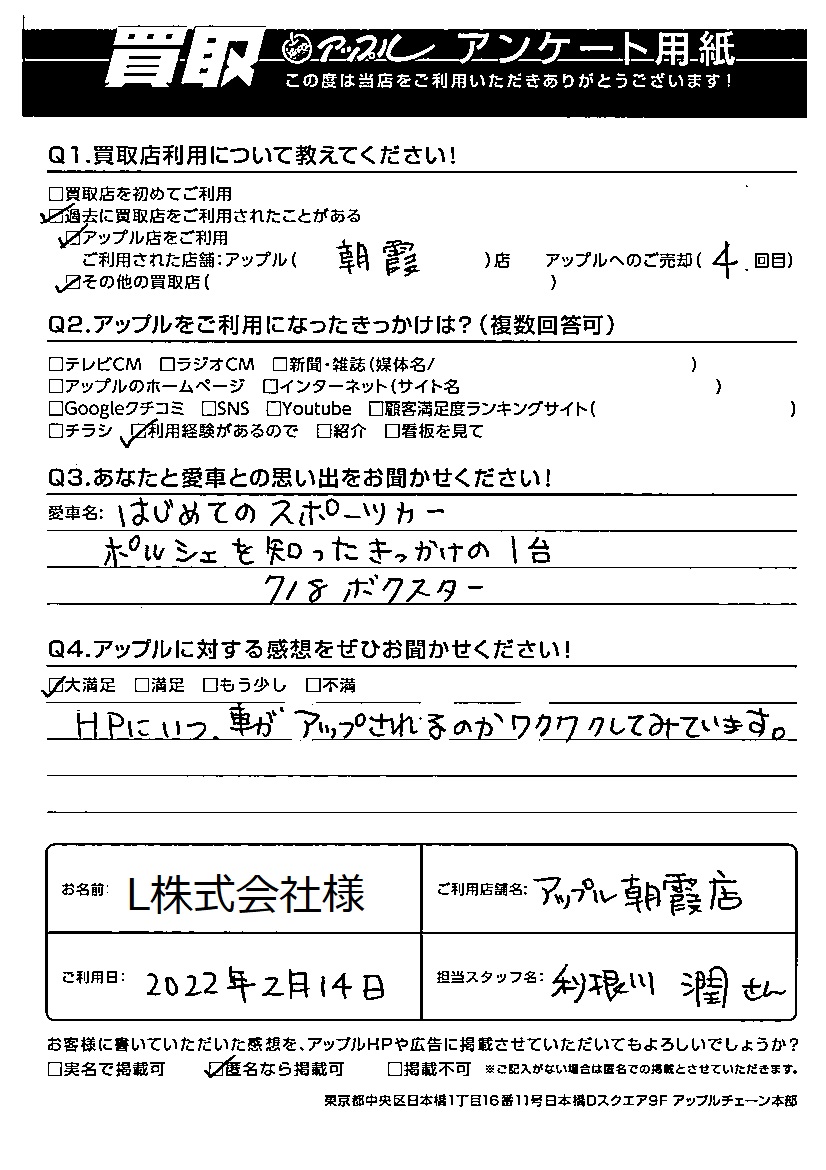 買取 アップル アンケート用紙
この度は当店をご利用いただきありがとうございます!
Q1.買取店利用について教えてください!
□買取店を初めてご利用
☑過去に買取店をご利用されたことがある
☑アップル店をご利用
ご利用された店舗:アップル( 朝霞 )店 アップルへのご売却( 4 回目)
☑その他の買取店( )
Q2.アップルをご利用になったきっかけは?(複数回答可)
□テレビCM □ラジオCM □新聞・雑誌(媒体名/ )
□アップルのホームページ □インターネット(サイト名 )
□Googleクチコミ □SNS □Youtube □顧客満足度ランキングサイト( )
□チラシ ☑利用経験があるので □紹介 □看板を見て
Q3.あなたと愛車との思い出をお聞かせください!
愛車名: はじめてのスポーツカー
ポルシェを知ったきっかけの1台
718 ボクスター
Q4.アップルに対する感想をぜひお聞かせください!
☑大満足 □満足 □もう少し □不満
HPにいつ、車がアップされるのかワクワクしてみています。
お名前: L株式会社様
ご利用店舗名: アップル朝霞店
ご利用日: 2022年2月14日
担当スタッフ名: 利根川 潤さん
お客様に書いていただいた感想を、アップルHPや広告に掲載させていただいてもよろしいでしょうか?
□実名で掲載可 ☑匿名なら掲載可 □掲載不可 ※ご記入がない場合は匿名での掲載とさせていただきます。
東京都中央区日本橋1丁目16番11号日本橋Dスクエア9F アップルチェーン本部